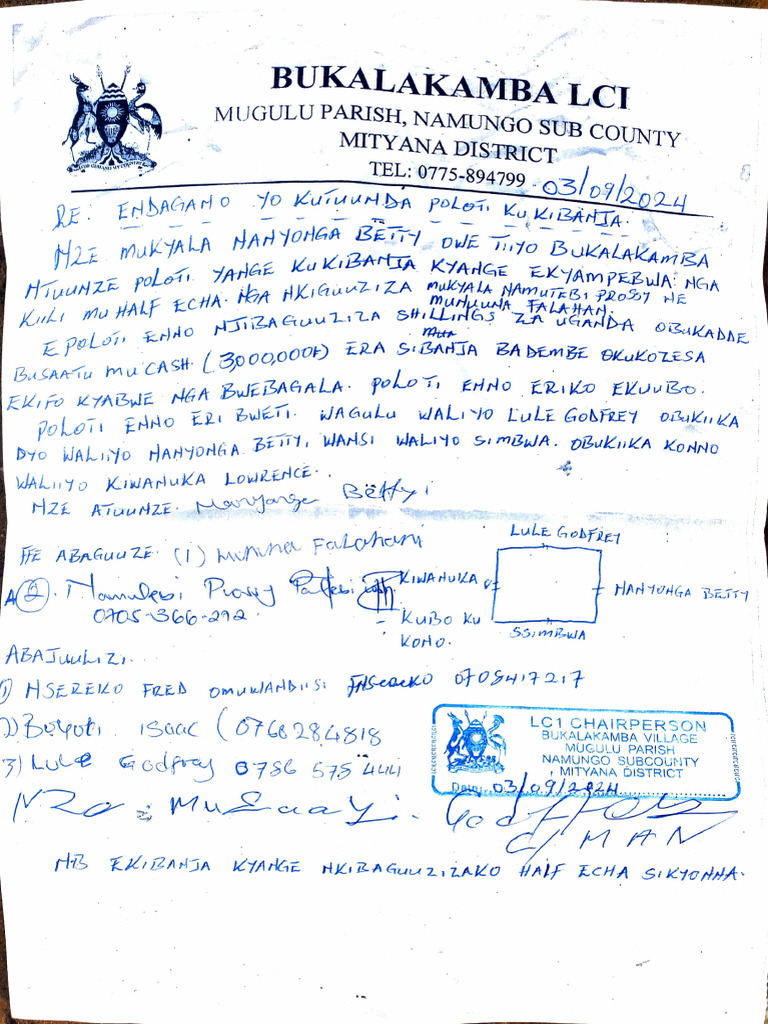 BUKALAKAMBA LCI
MUGULU PARISH, NAMUNGO SUB COUNTY
MITYANA DISTRICT
TEL: 0775-894799
03/09/2024
RE: ENDAGANO YO KUTUUNDA POLOTI KU KIBANJA.
NZE MUKYALA NANYONGA BETTY OWE TIIYO BUKALAKAMBA
NTUUNZE POLOTI YANGE KU KIBANJA KYANGE EKYAMPEBWA NGA
KIILI MU HALF ECHA. NGA NKIGUUZIZA MUKYALA NAMUTEBI PROSSY NE
MUNUUNA FALAHAN.
EPOLOTI ENNO NJIBAGUUZIZA SHILLINGS ZA UGANDA OBUKADDE
BUSAATU MU CASH. (3,000,000/=) ERA SIBANJA BADEMBE OKUKOZESA
EKIFO KYABWE NGA BWEBAGALA. POLOTI ENNO ERIKO EKUUBO.
POLOTI ENNO ERI BWETI. WAGULU WALIYO LULE GODFREY OBUKIIKA
DYO WALIIYO NANYONGA BETTY, WANSI WALIYO SIMBWA. OBUKIIKA KONNO
WALIIYO KIWANUKA LOWRENCE.
NZE ATUUNZE. Betty
FFE ABAGUUZE. (1) Falaham
LULE GODFREY
(2). Prossy
KIWANUKA
NANYONGA BETTY
0705-366-292
KUBO KU
KONO.
SSIMBWA
ABAJUULIZI.
1) NSEREIKO FRED OMUWANDIISI 0708417217
2) Isaac (0760284818
3) Lule Godfrey 0786 575 444
LC1 CHAIRPERSON
BUKALAKAMBA VILLAGE
MUGULU PARISH
NAMUNGO SUBCOUNTY
MITYANA DISTRICT
Date: 03/09/2024
C/MAN
NB EKIBANJA KYANGE NKIBAGUUZIZAKO HALF ECHA SIKYONNA.